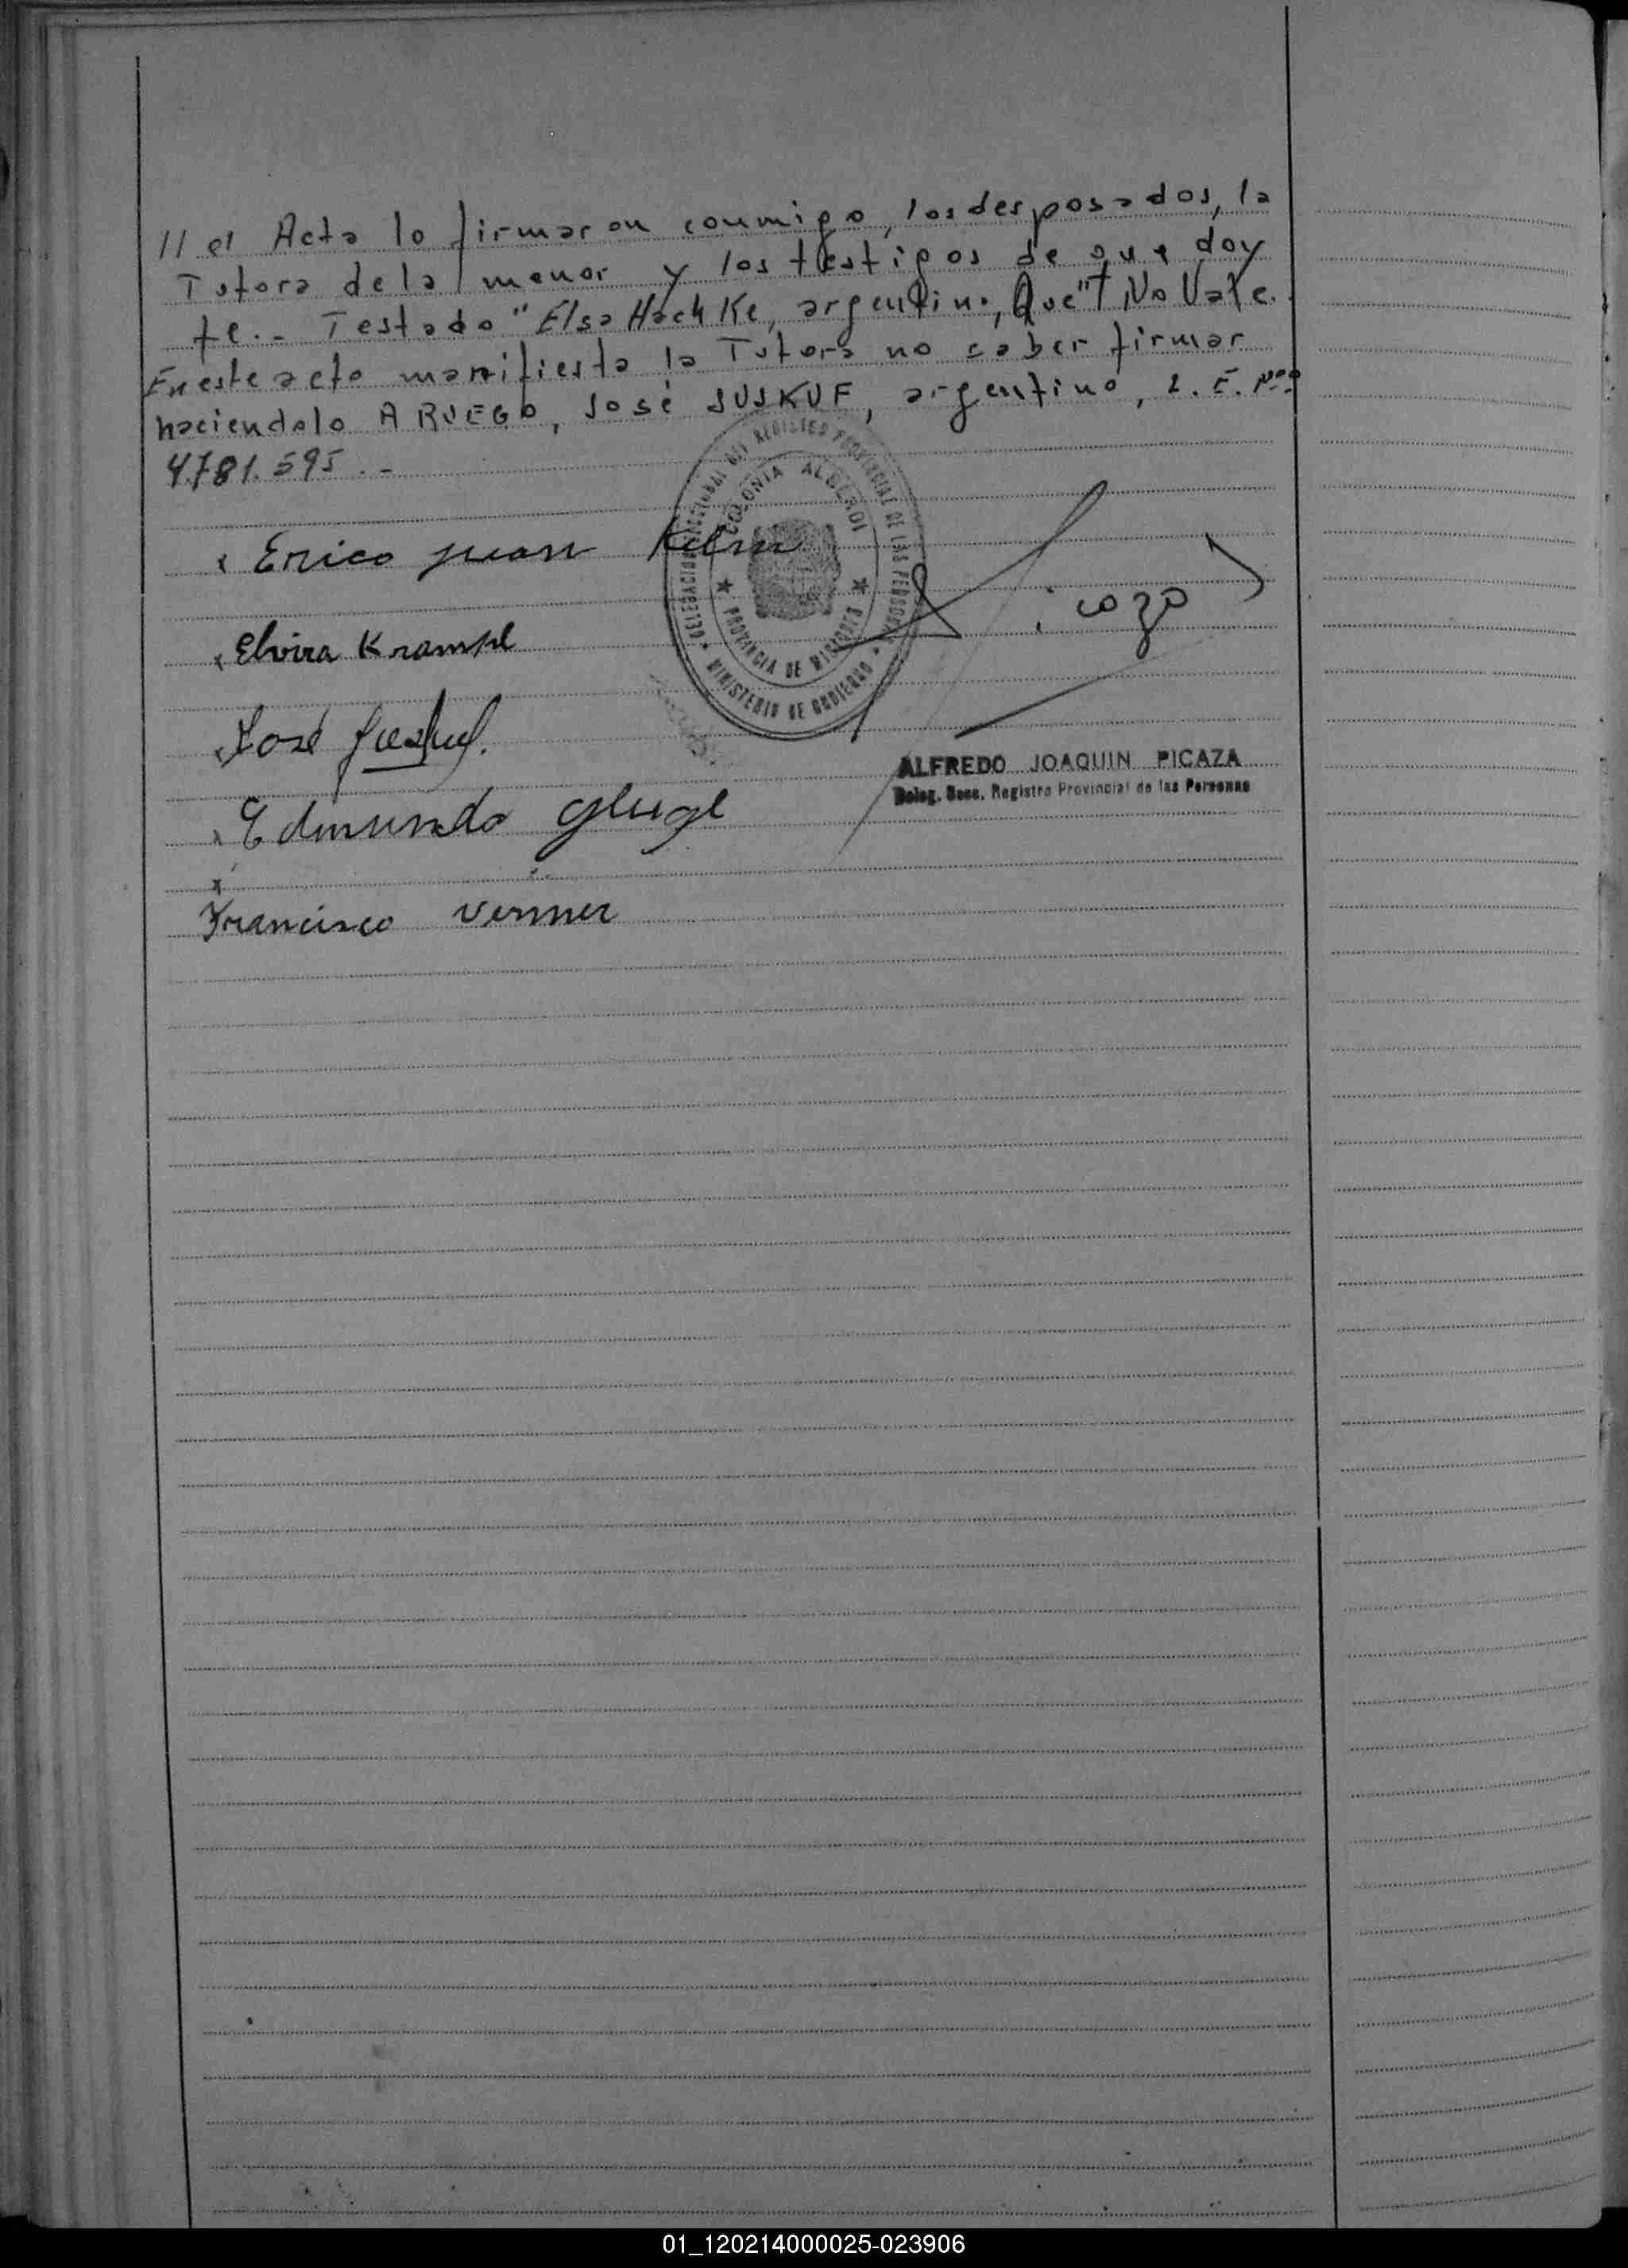 // el Acta lo firmaron conmigo, los desposados, la
Tutora de la menor y los testigos de que doy
fe.- Testado "Elsa Hachke, argentin., Que" No Vale.
En este acto manifiesta la Tutora no saber firmar
haciendolo A RUEGO, José JUSKUF, argentino, L. E. Nº
4.781.595.-
Erico Juan
Elvira Krampl
José Juskuf.
Edmundo Gluge
x
Francisco Verner
DELEGACION SECCIONAL DEL REGISTRO PROVINCIAL DE LAS PERSONAS
COLONIA ALBERDI
PROVINCIA DE MISIONES
MINISTERIO DE GOBIERNO
ALFREDO JOAQUIN PICAZA
Deleg. Secc. Registro Provincial de las Personas
01_120214000025-023906